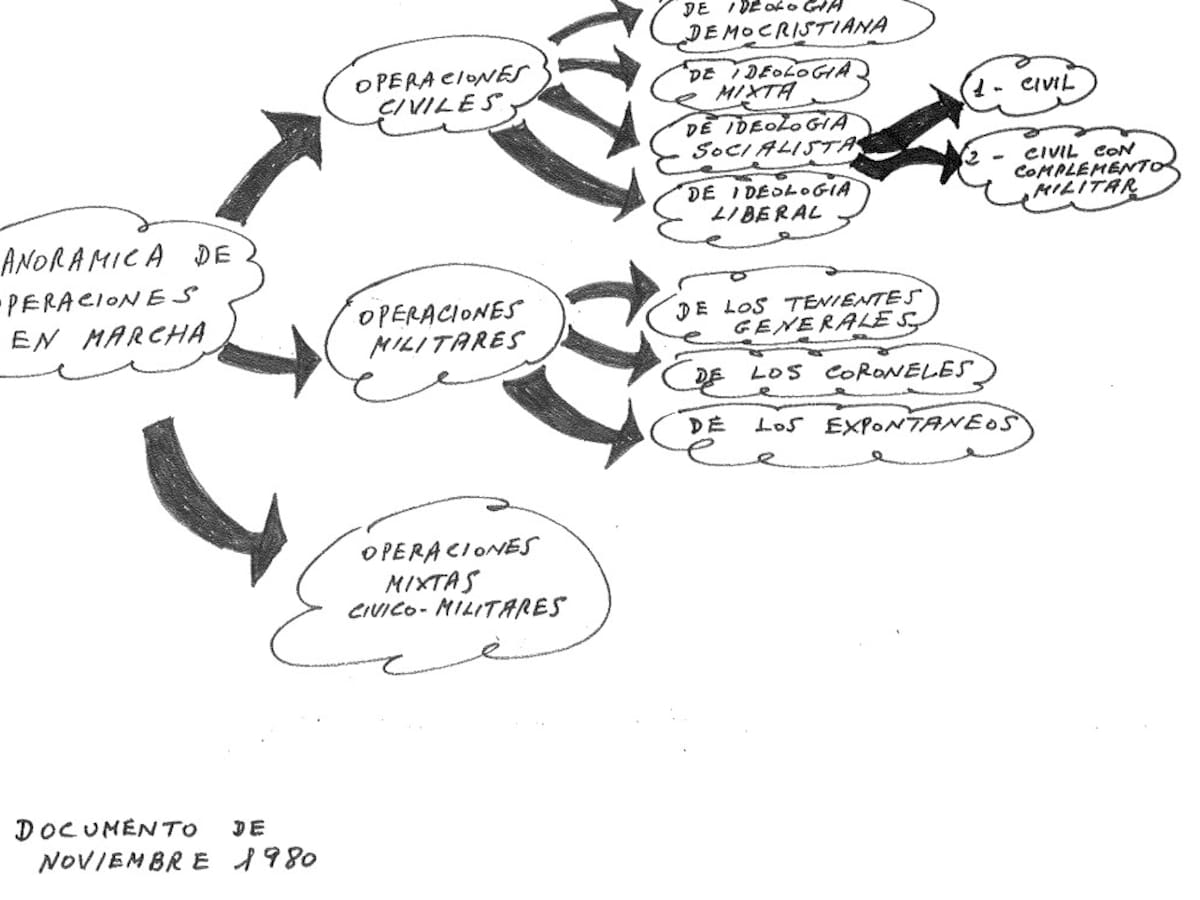 DE IDEOLOGIA
DEMOCRISTIANA
OPERACIONES
CIVILES
DE IDEOLOGIA
MIXTA
DE IDEOLOGIA
SOCIALISTA
1 - CIVIL
2 - CIVIL CON
COMPLEMENTO
MILITAR
DE IDEOLOGIA
LIBERAL
ANORAMICA DE
PERACIONES
EN MARCHA
OPERACIONES
MILITARES
DE LOS TENIENTES
GENERALES
DE LOS CORONELES
DE LOS EXPONTANEOS
OPERACIONES
MIXTAS
CIVICO-MILITARES
DOCUMENTO DE
NOVIEMBRE 1980